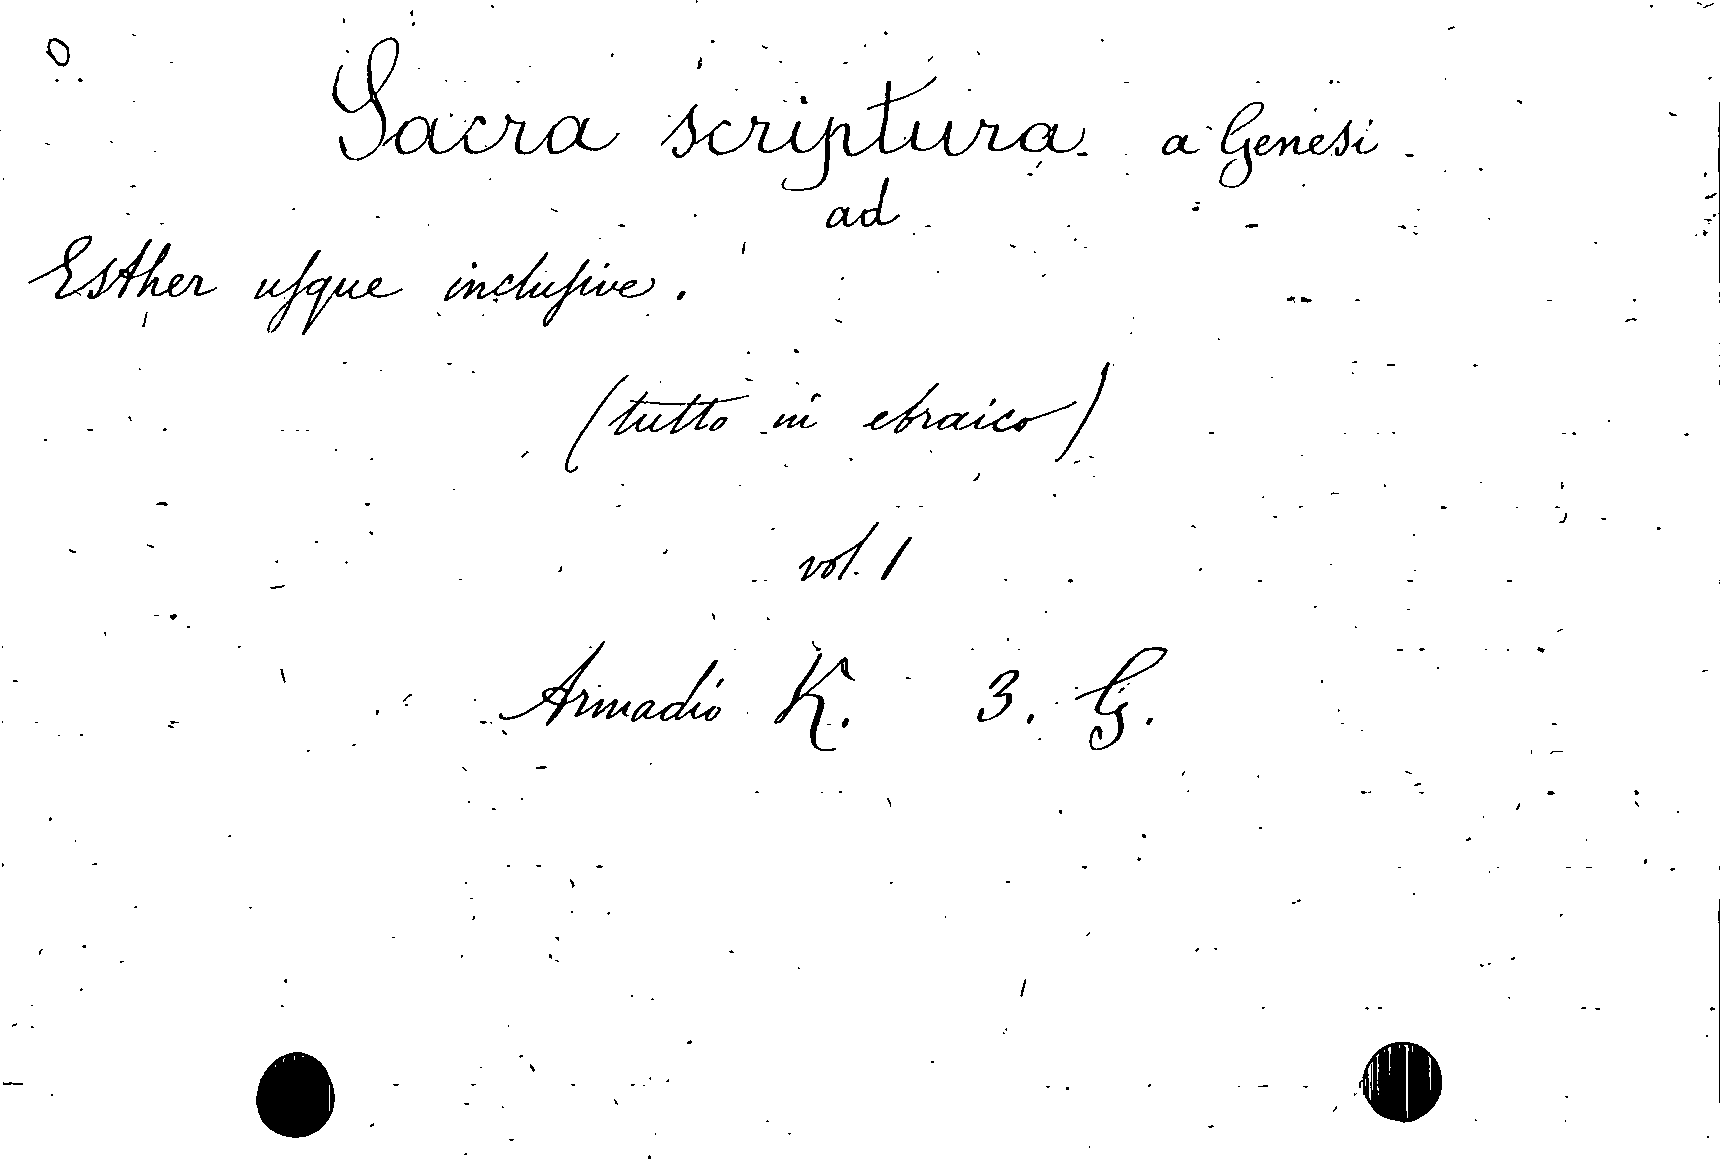 Sacra scriptura a Genesi
ad
Esther uſque incluſive.
(tutto in ebraico)
vol. 1
Armadio K. 3. G.